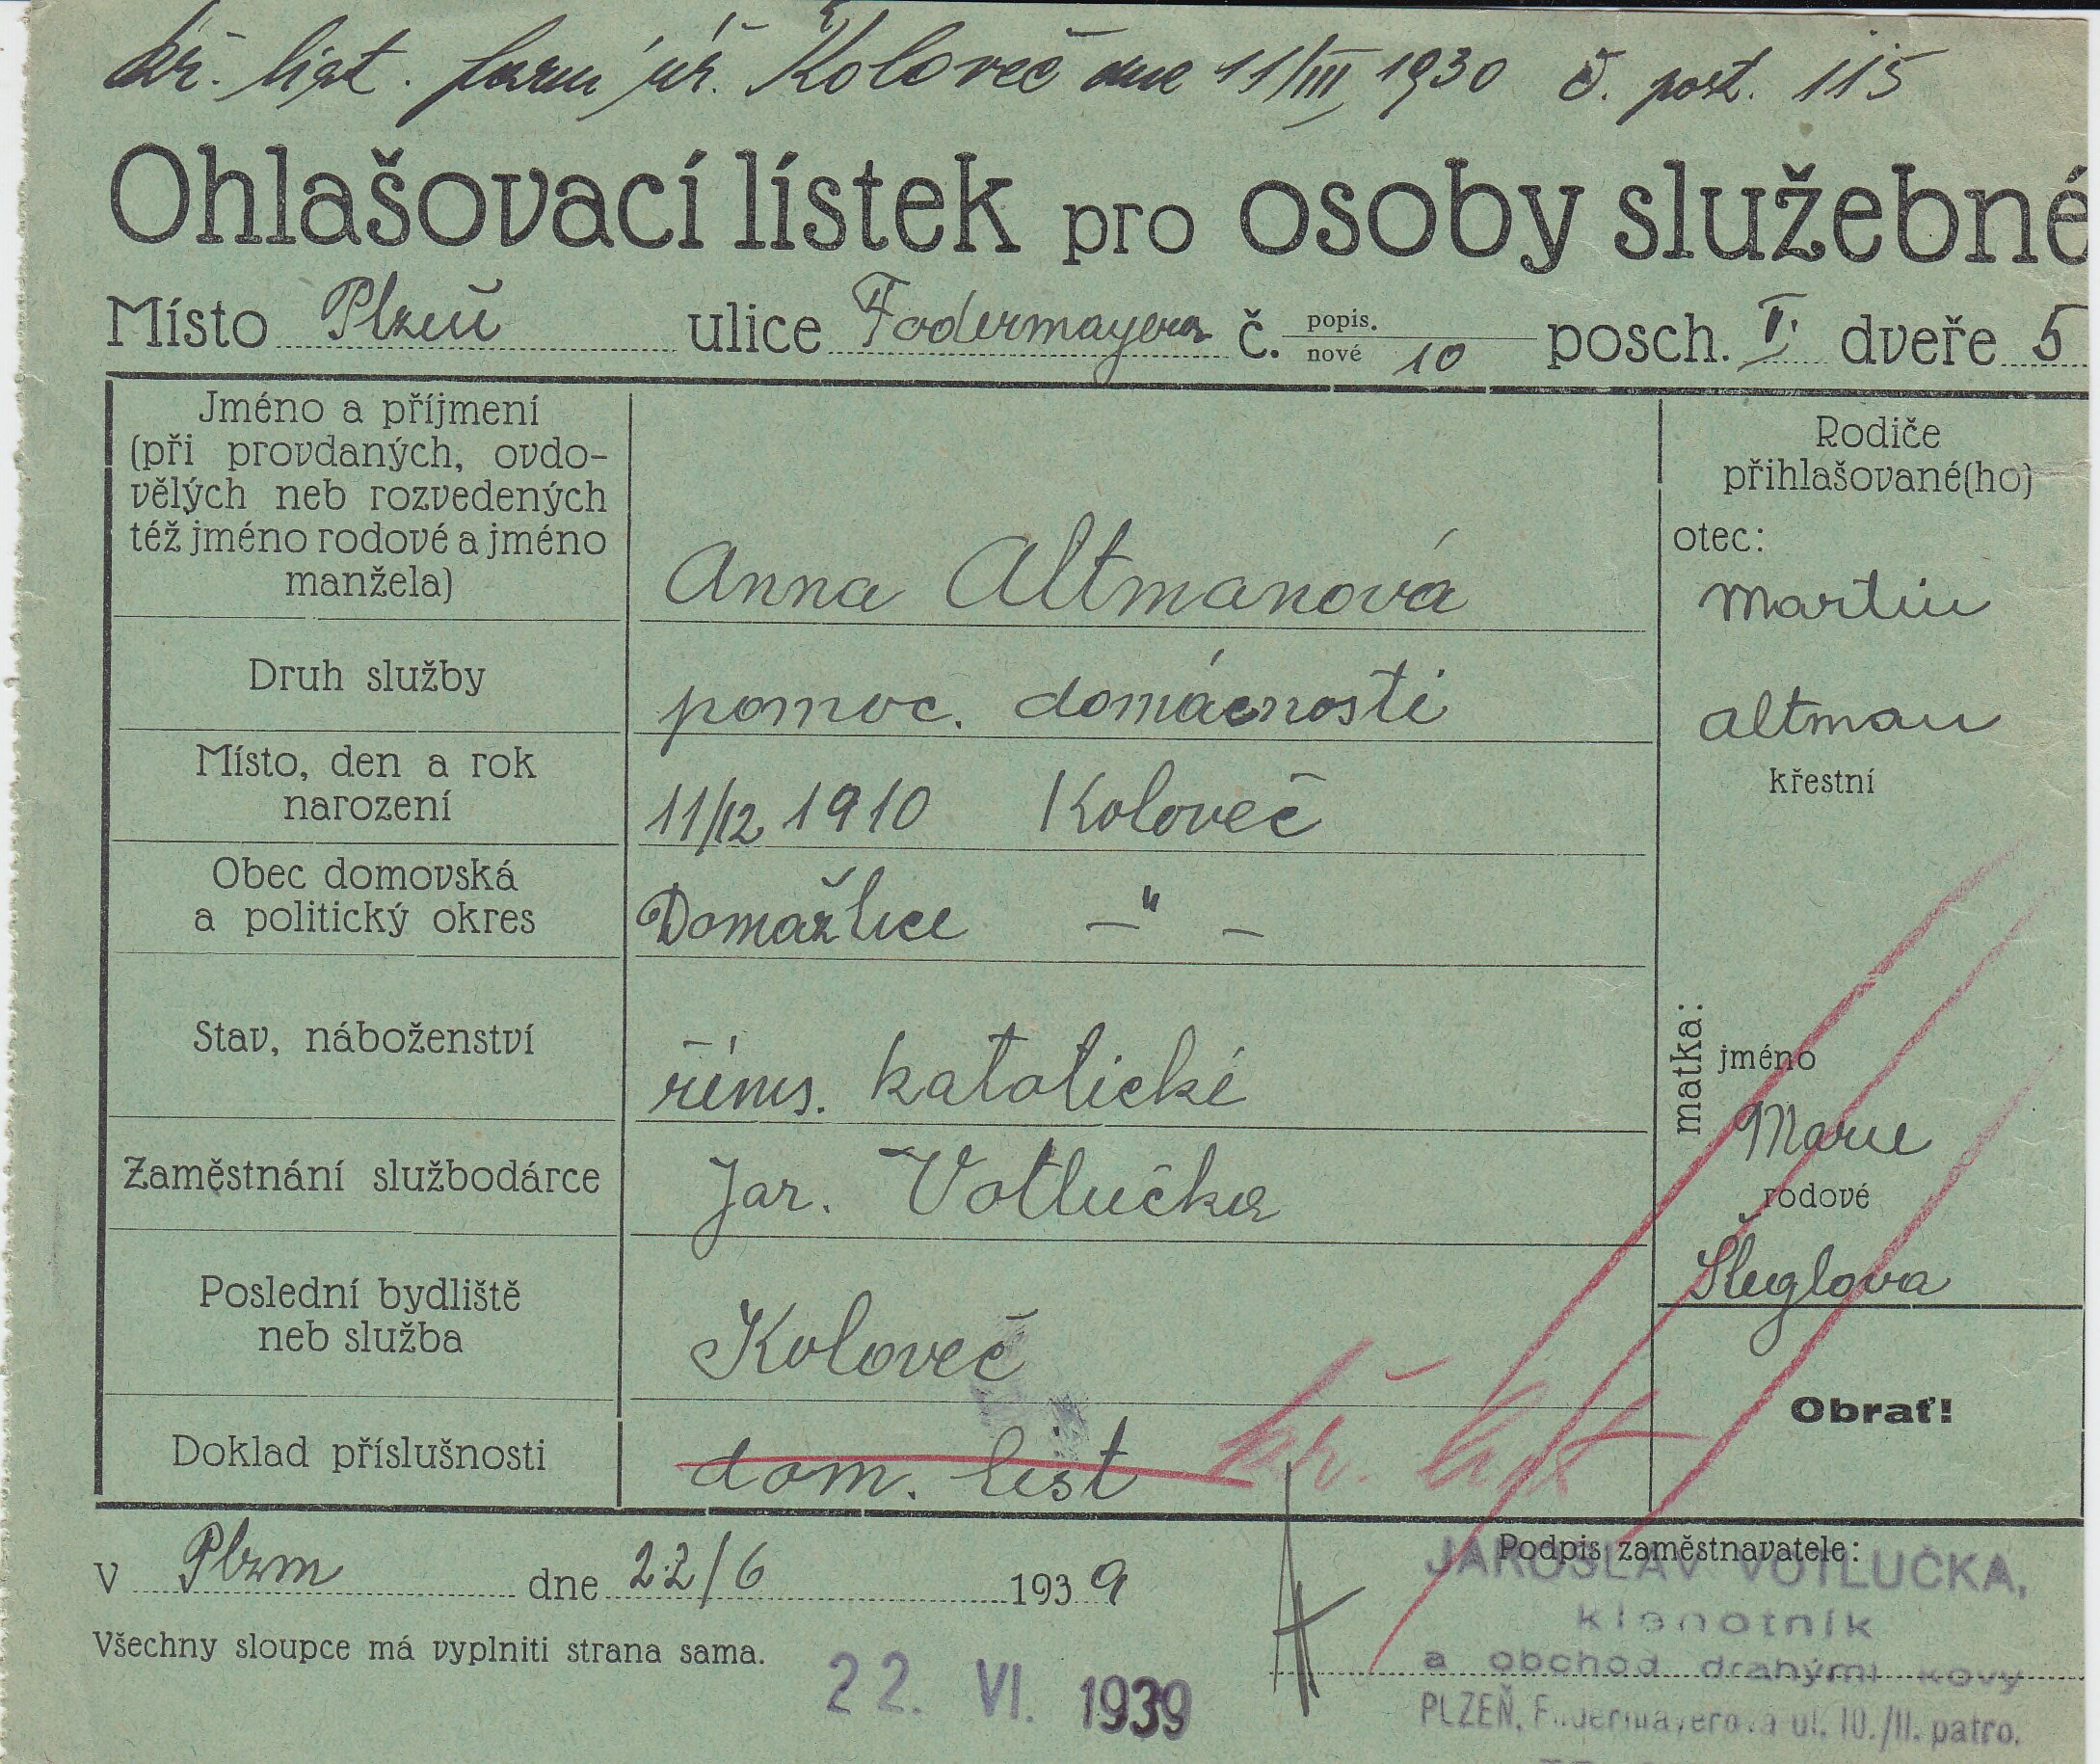 kř. list. farní úř. Koloveč dne 11/III 1930 č. post. 115
Ohlašovací lístek pro osoby služebné
Místo Plzeň ulice Fodermayera č. popis. nové 10 posch. II. dveře 5
Jméno a příjmení
(při provdaných, ovdo-
vělých neb rozvedených
též jméno rodové a jméno
manžela)
Anna Altmanová
Rodiče
přihlašované(ho)
otec:
Martin
Altman
Druh služby
pomoc. domácnosti
Místo, den a rok
narození
11/12 1910 Koloveč
křestní
Obec domovská
a politický okres
Domažlice –"–
Stav, náboženství
říms. katolické
matka:
jméno
Marie
Zaměstnání službodárce
Jar. Votlučka
rodové
Šluglova
Poslední bydliště
neb služba
Koloveč
Obrať!
Doklad příslušnosti
dom. list kř. list
v Plzni dne 22/6 1939
Podpis zaměstnavatele:
JAROSLAV VOTLUČKA,
klenotník
a obchod drahými kovy
PLZEŇ, Fodermayerova ul. 10./II. patro.
Všechny sloupce má vyplniti strana sama.
22. VI. 1939